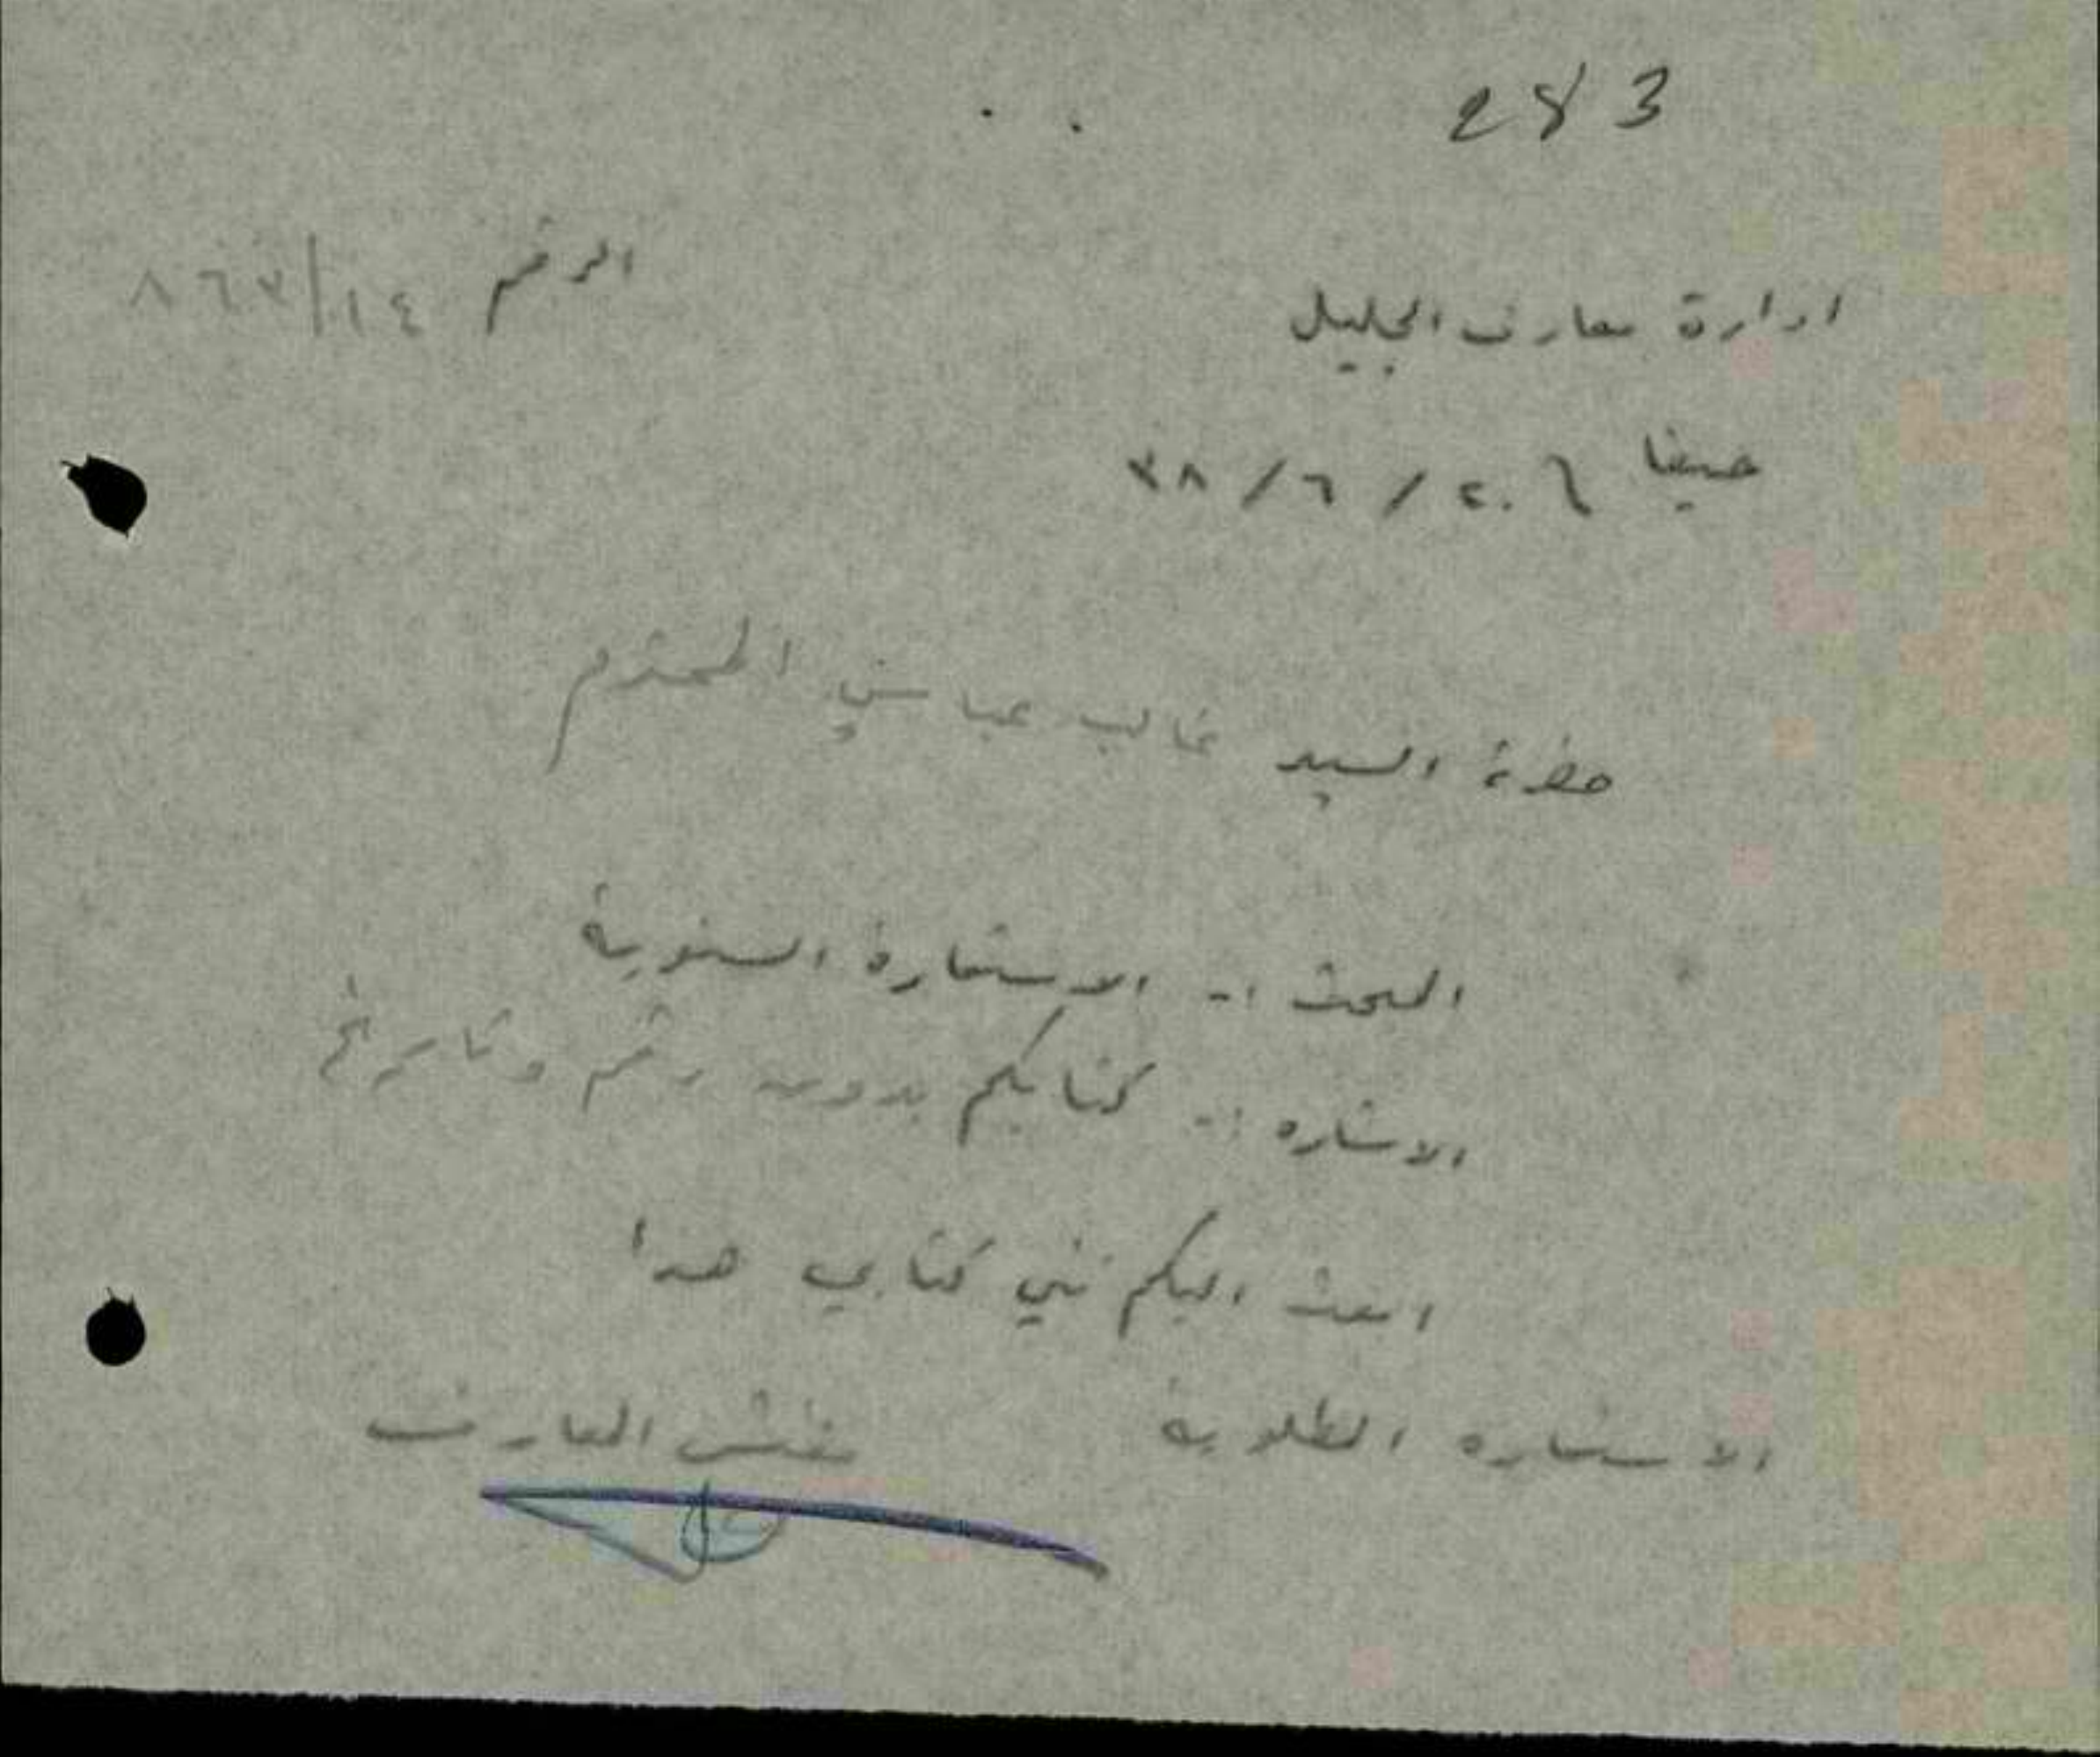 283
ادارة معارف الجليل
الرقم ٨٦٧/١٤
حيفا في ٢٠/٦/٣٨
حضرة السيد غالب عباسي المحترم
البحث :- الاستمارة السنوية
الاشاره :- كتابكم بدون رقم وتاريخ
ابعث اليكم بطي كتابي هذا
الاستماره المطلوبة
مفتش المعارف